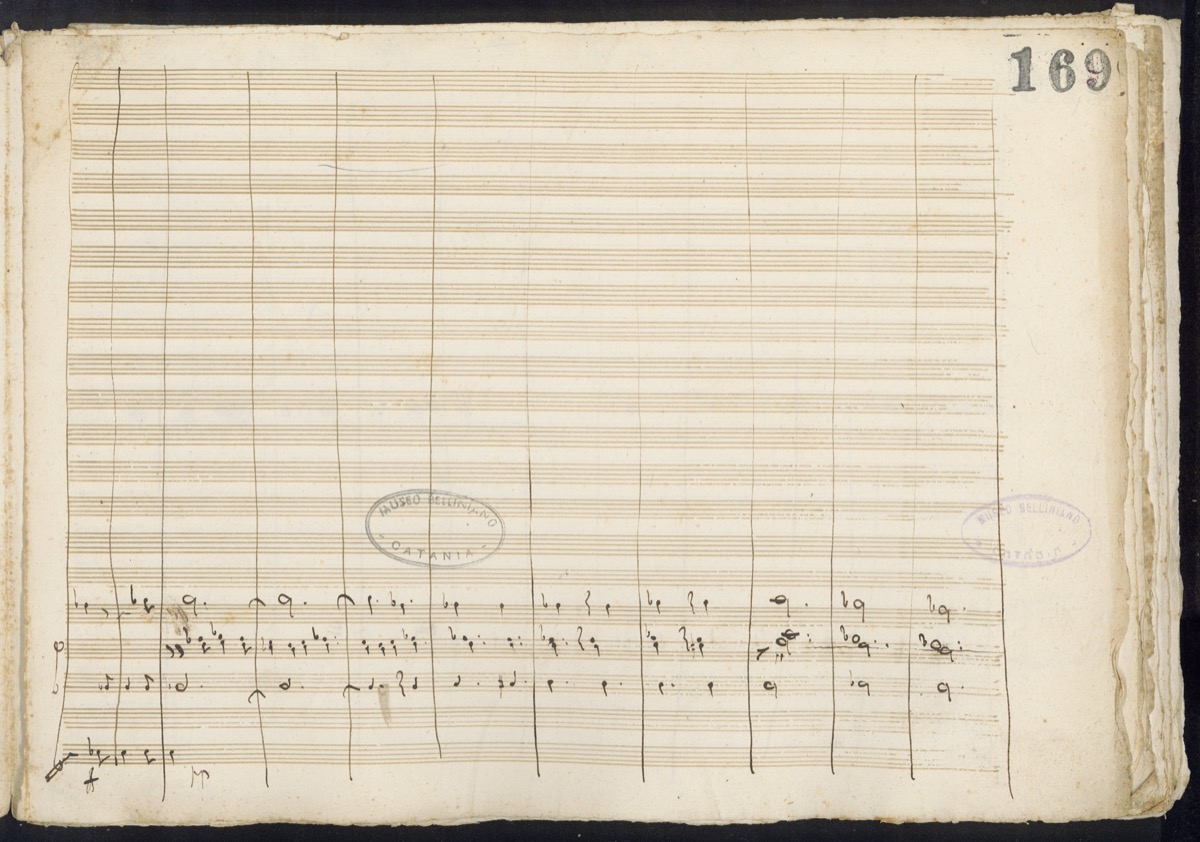 169
MUSEO BELLINIANO
- CATANIA -
MUSEO BELLINIANO